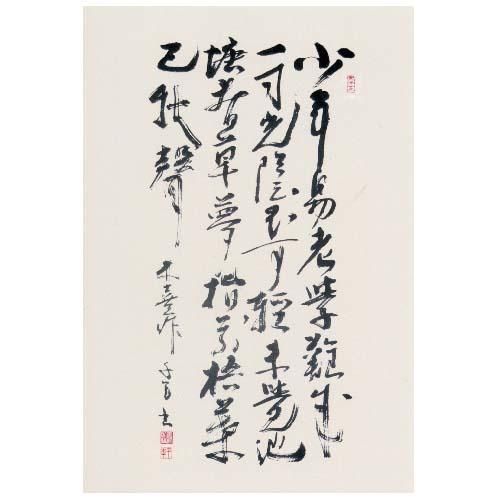 少年易老學難成
一寸光陰不可輕未覺池
塘春草夢階前梧葉
已秋聲
朱熹作